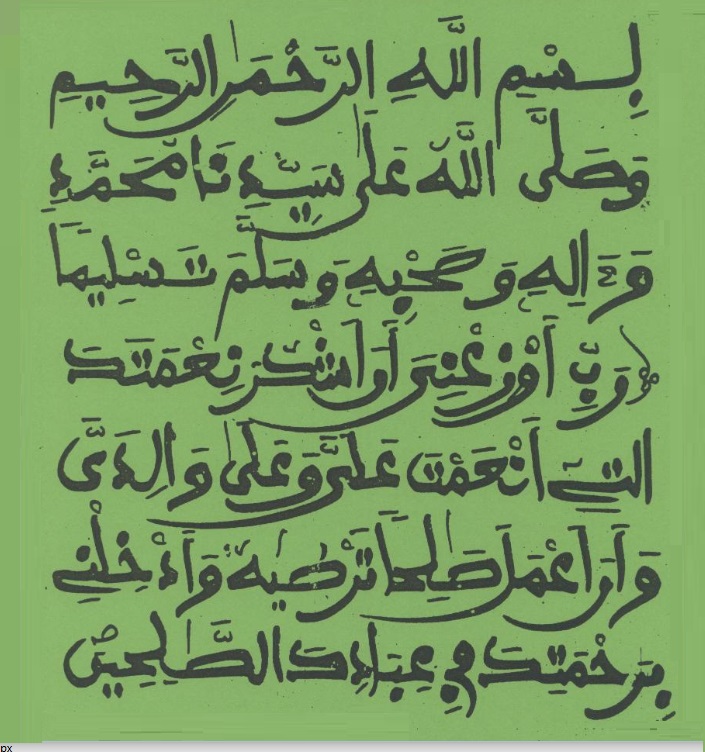 بِسْمِ اللَّهِ الرَّحْمَنِ الرَّحِيمِ
وَصَلَّى اللَّهُ عَلَى سَيِّدِنَا مُحَمَّدٍ
وَءَالِهِ وَصَحْبِهِ وَسَلَّمَ تَسْلِيمًا
رَبِّ أَوْزِعْنِي أَنْ أَشْكُرَ نِعْمَتَكَ
التِي أَنْعَمْتَ عَلَيَّ وَعَلَى وَالِدَيَّ
وَأَنْ أَعْمَلَ صَالِحًا تَرْضَيهُ وَأَدْخِلْنِي
بِرَحْمَتِكَ فِي عِبَادِكَ الصَّالِحِينَ
px